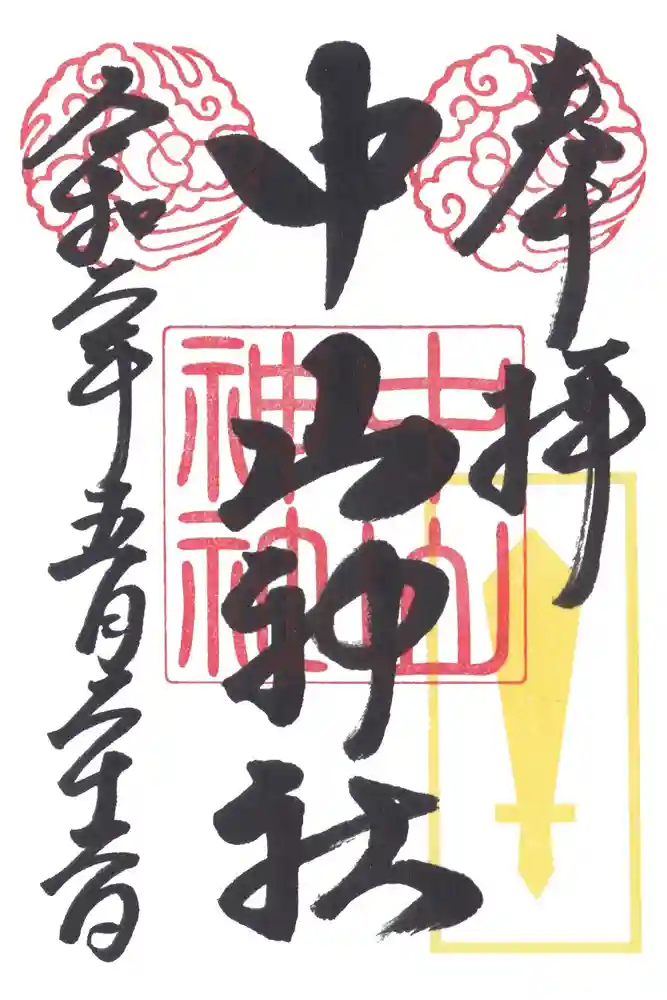 奉拝
中山神社
令和二年五月二十日
中山
神社